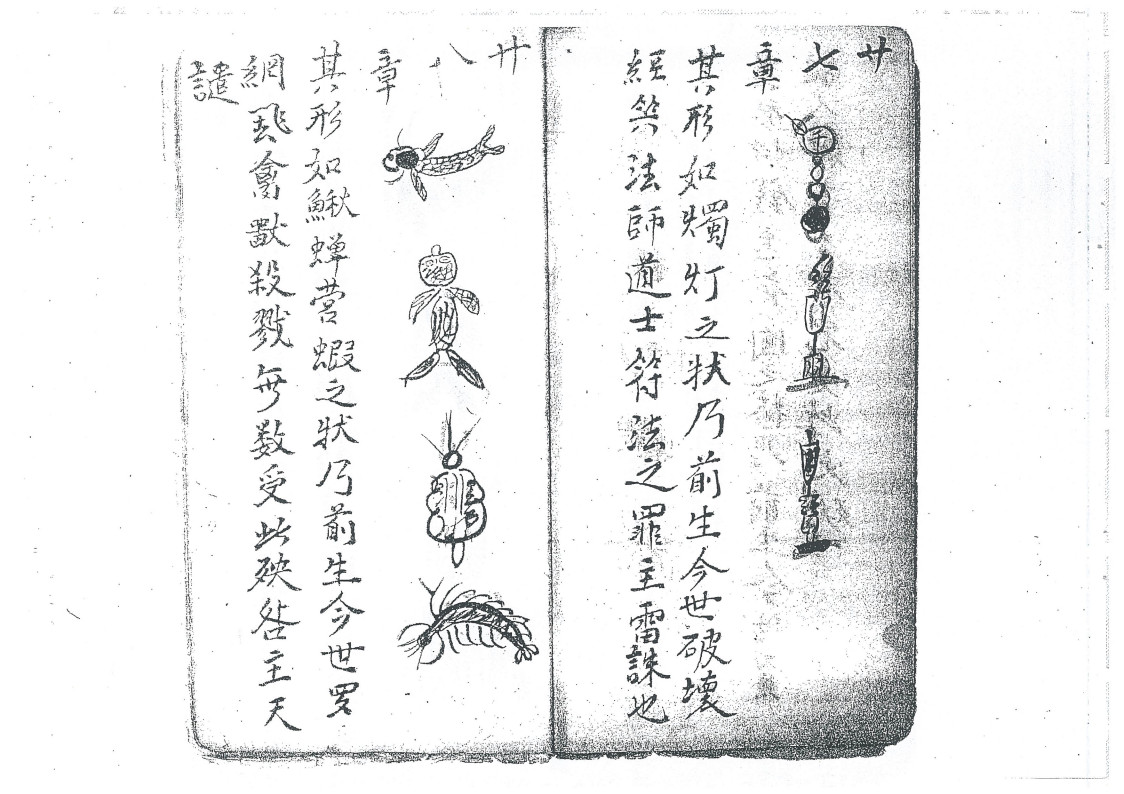 廿七章
其形如燭灯之状乃前生今世破壞
經筭法師道士符法之罪主雷誅也
廿八章
其形如鰍蝉蒼蝦之状乃前生今世罗
網飛禽獸殺戮無数受此殃咎主天
譴